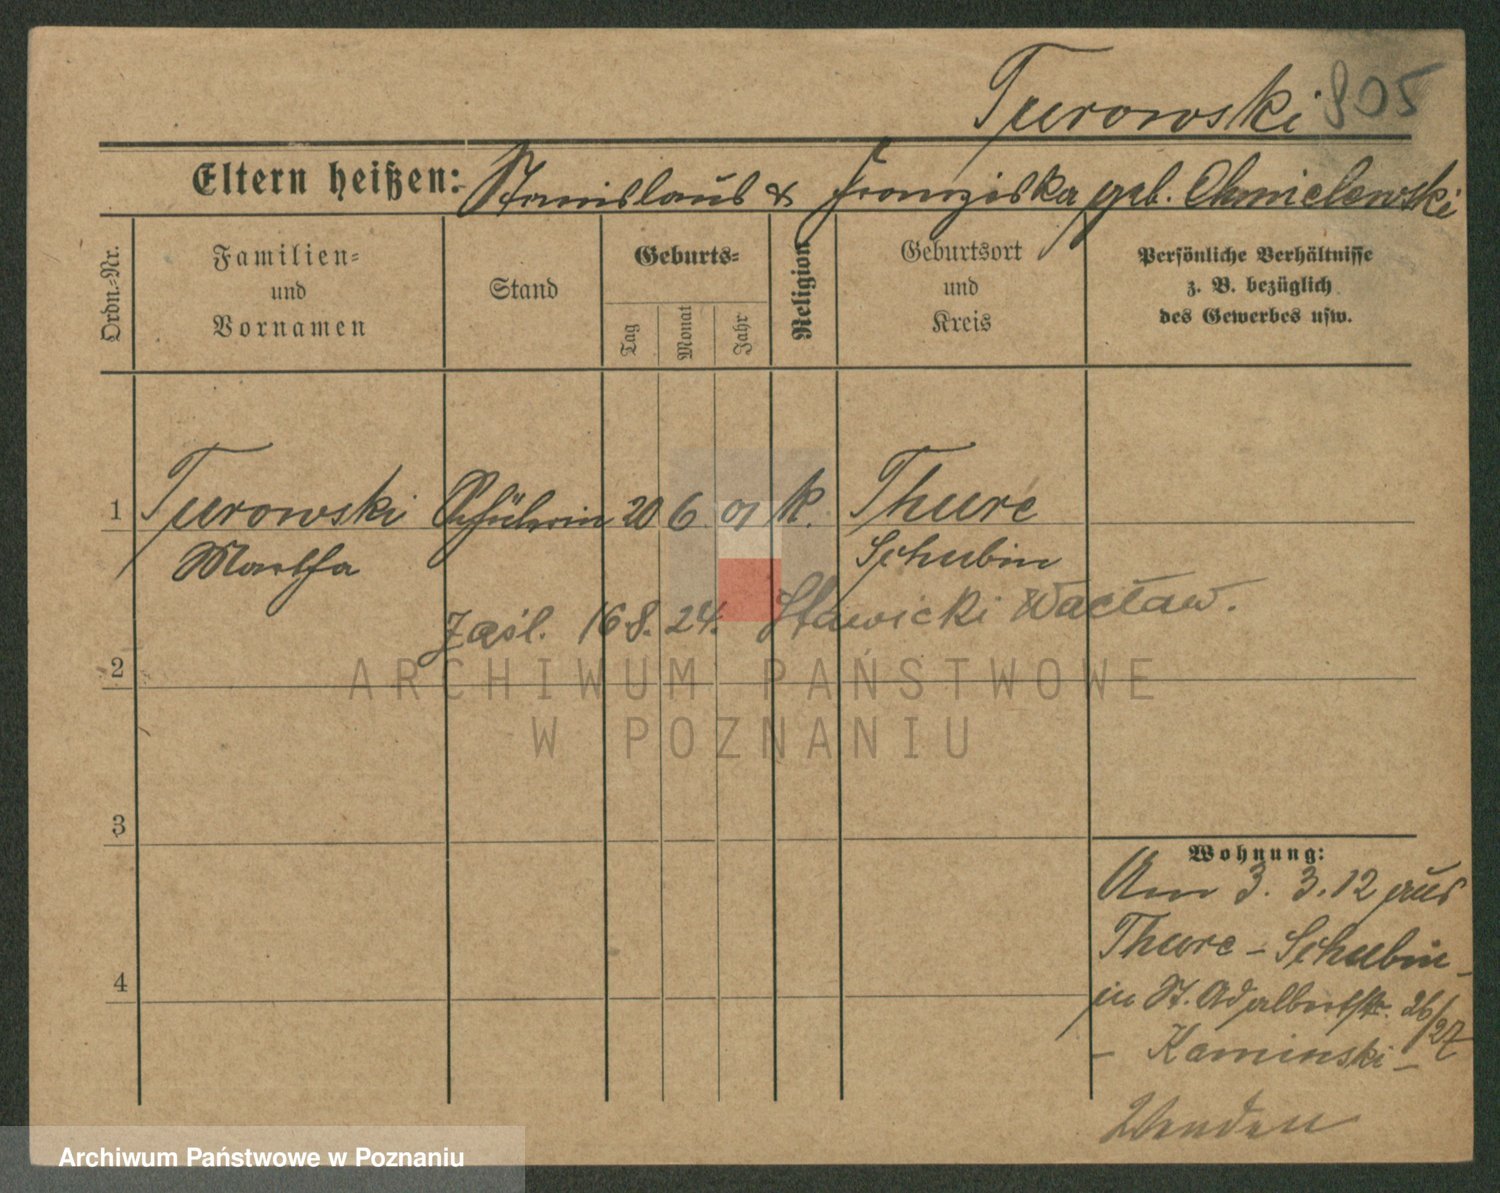 Turowski 905
Eltern heißen: Stanislaus & Franziska geb. Chmielewski
Ordn.-Nr.
Familien-
und
Vornamen
Stand
Geburts-
Tag
Monat
Jahr
Religion
Geburtsort
und
Kreis
Persönliche Verhältnisse
z. B. bezüglich
des Gewerbes usw.
1 Turowski 20 6 01 k. Thure
Martha Schubin
Zaśl. 16.8.24. Sławicki Wacław.
2
ARCHIWUM PAŃSTWOWE
W POZNANIU
3
Wohnung:
Am 3.3.12 aus
Thure - Schubin -
in St. Adalbertstr. 26/27
- Kaminski -
4
Wenden
Archiwum Państwowe w Poznaniu